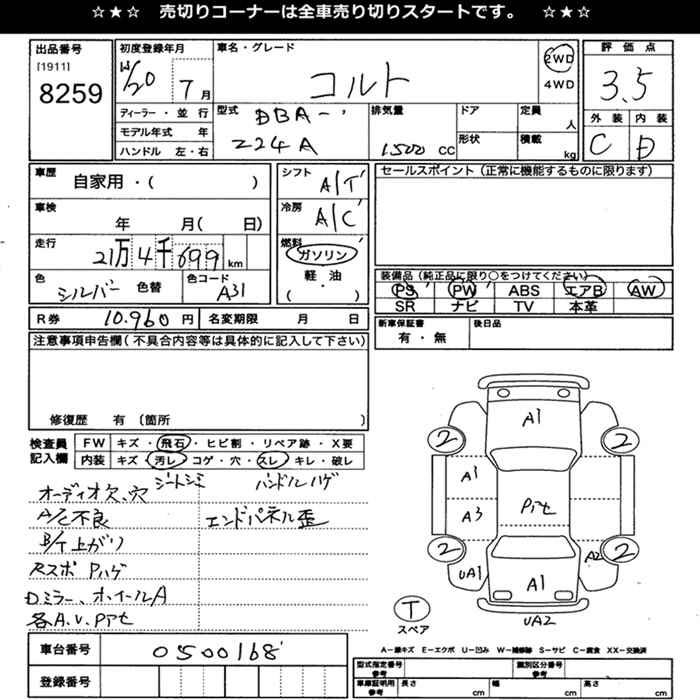 ☆★☆ 売切りコーナーは全車売り切りスタートです。 ☆★☆
出品番号
[1911]
8259
初度登録年月
H/20 7月
ディーラー・並行
モデル年式 年
ハンドル 左・右
車名・グレード
コルト
2WD
4WD
型式 DBA-
Z24A
排気量
1500 CC
ドア
形状
定員
人
積載
kg
評価点
3.5
外装 内装
C D
車歴
自家用・( )
車検
年 月( 日)
走行
21万4千699km
色
シルバー 色替
色コード
A31
シフト
A/T
冷房
A/C
燃料
ガソリン
軽・油
(・)
セールスポイント(正常に機能するものに限ります)
装備品(純正品に限り○をつけてください)
PS PW ABS エアB AW
SR ナビ TV 本革
R券 10.960円 名変期限 月 日
新車保証書
有・無
後日品
注意事項申告欄(不具合内容等は具体的に記入して下さい)
修復歴 有〔箇所 〕
検査員
記入欄
FW キズ・飛石・ヒビ割・リペア跡・X要
内装 キズ・汚レ・コゲ・穴・スレ・キレ・破レ
シートシミ ハンドルハゲ
オーディオ欠、穴
A/C不良 エンドパネル歪
B/下上がり
RスポPハゲ
Dミラー、ホイールA
各A.U.Pアセ
A1
2 2
A1
A3 Pアセ
2 2
A2
UA1 A1
UA2
T
スペア
A−線キズ E−エクボ U−凹み W−補修跡 S−サビ C−腐食 XX−交換済
車台番号 0500168
登録番号
型式指定番号
参考
類別区分番号
参考
車庫証明用
参考
長さ cm 幅 cm 高さ cm